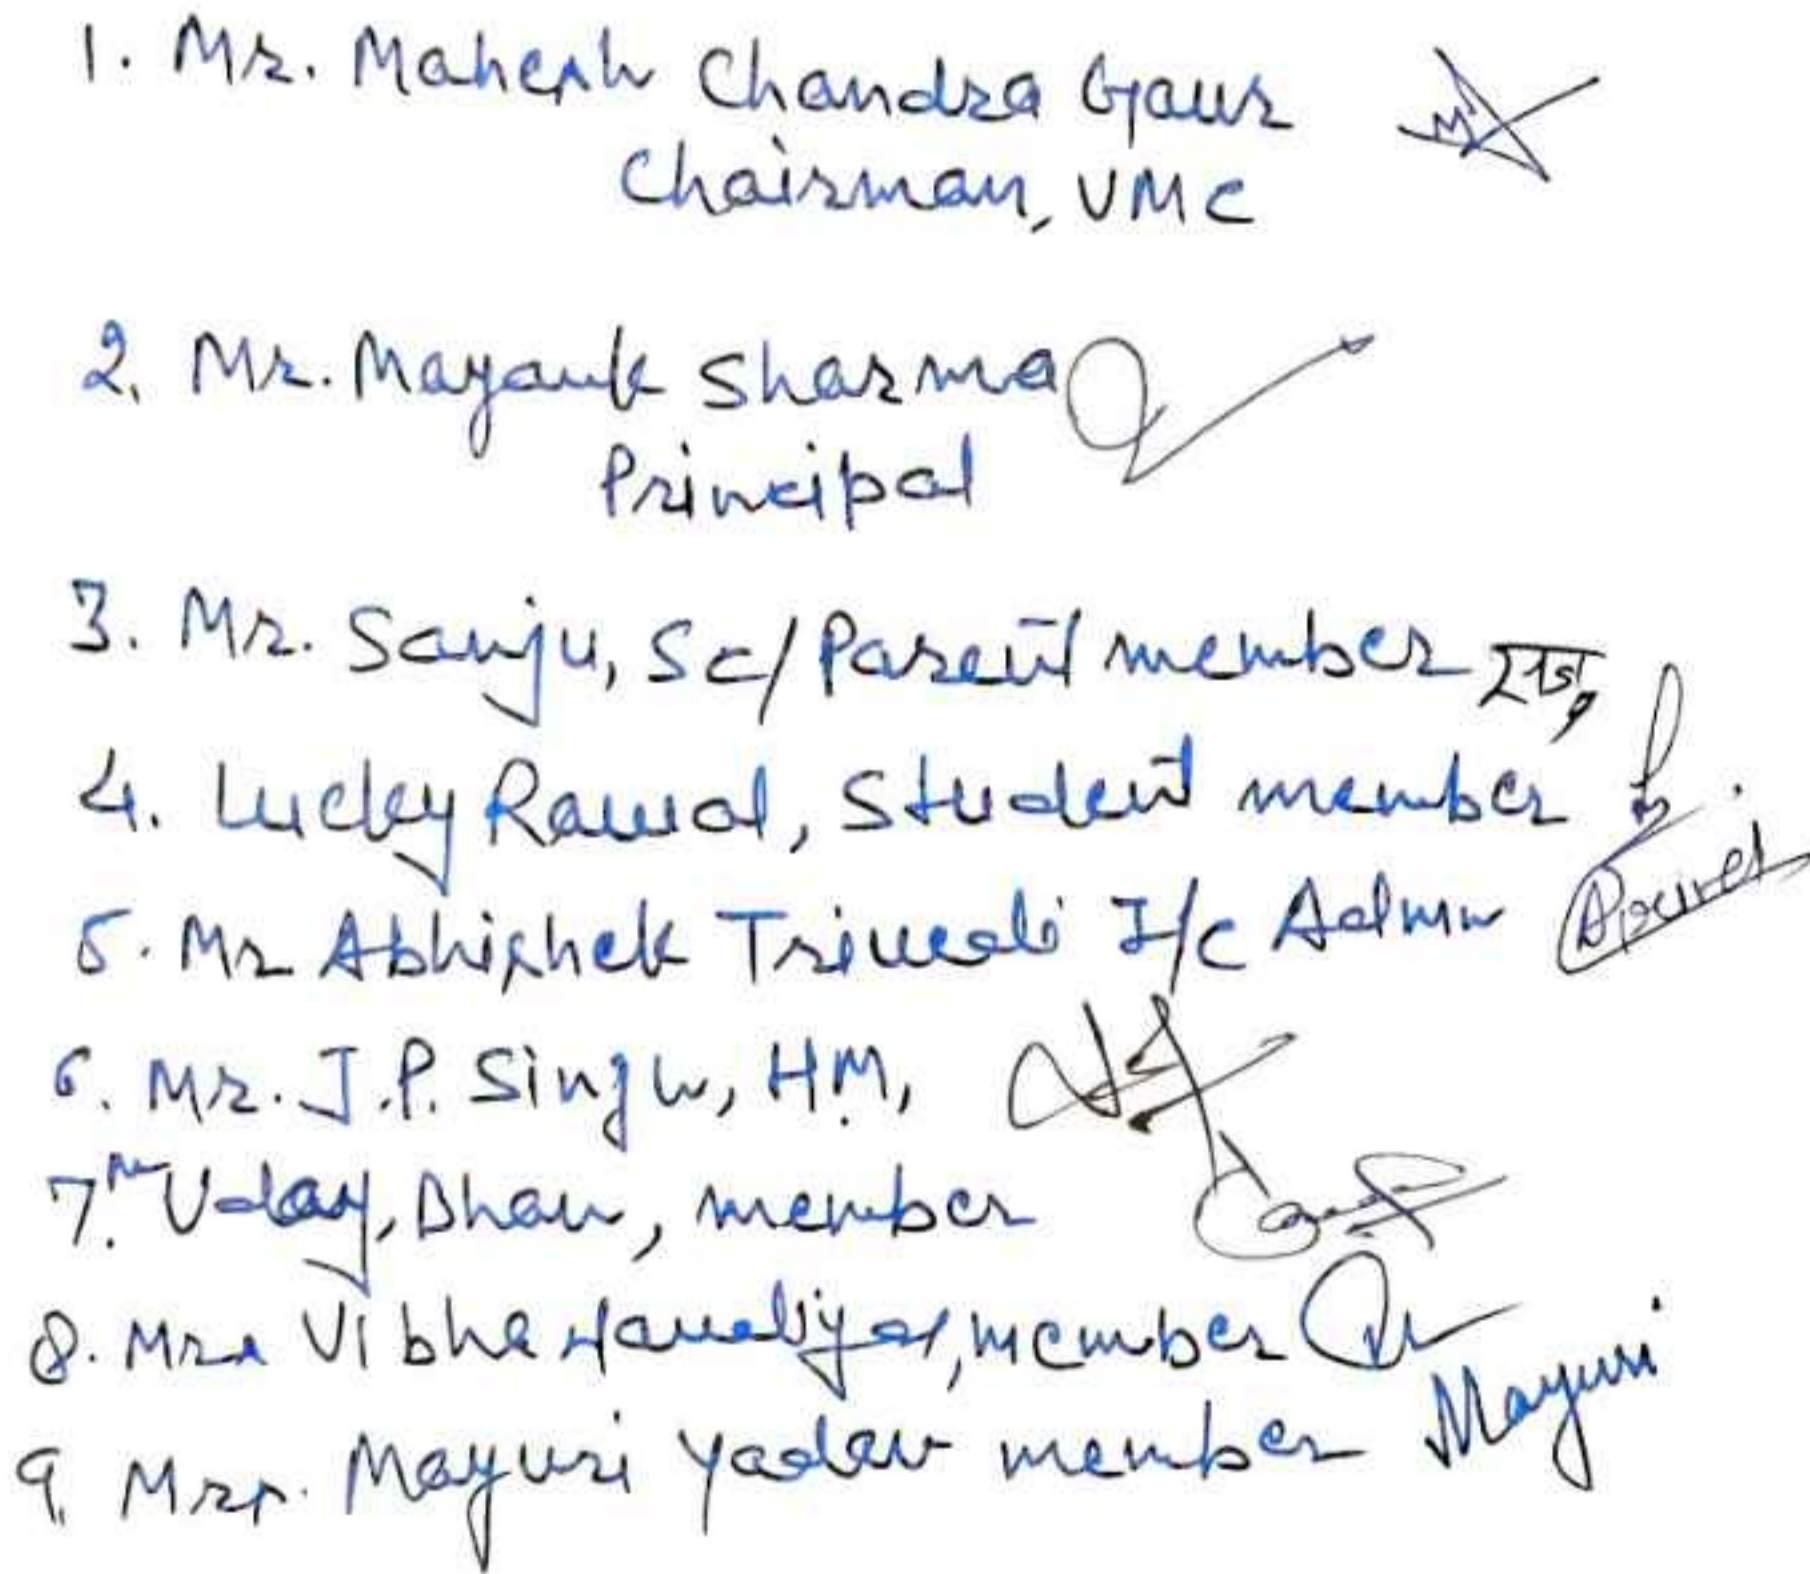 1. Mr. Mahesh Chandra Gaur
Chairman, VMC
2. Mr. Mayank Sharma
Principal
3. Mr. Sanju, SC/Parent member
4. Lucky Rawal, Student member
5. Mr Abhishek Trivedi I/C Admn
6. Mr. J.P. Singh, HM,
7. Mr Uday, Bhan, member
8. Mrs Vibha member
9. Mrs. Mayuri Yadav member Mayuri